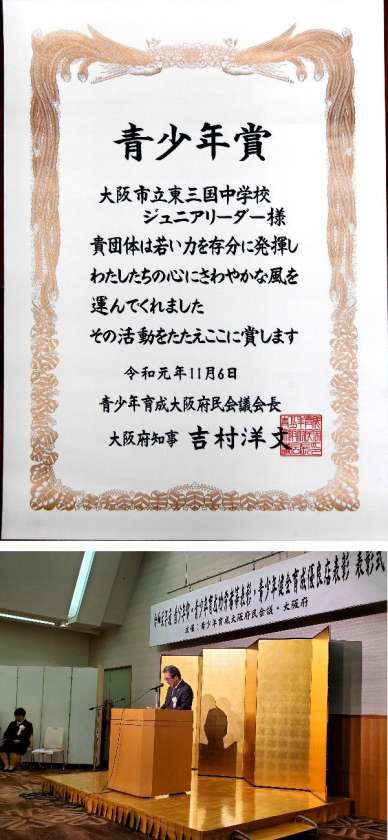 青少年賞
大阪市立東三国中学校
ジュニアリーダー様
貴団体は若い力を存分に発揮し
わたしたちの心にさわやかな風を
運んでくれました
その活動をたたえここに賞します
令和元年11月6日
青少年育成大阪府民会議会長
大阪府知事 吉村洋文
令和元年度 青少年賞・青少年育成功労者等表彰・青少年健全育成優良店表彰 表彰式
主催:青少年育成大阪府民会議・大阪府